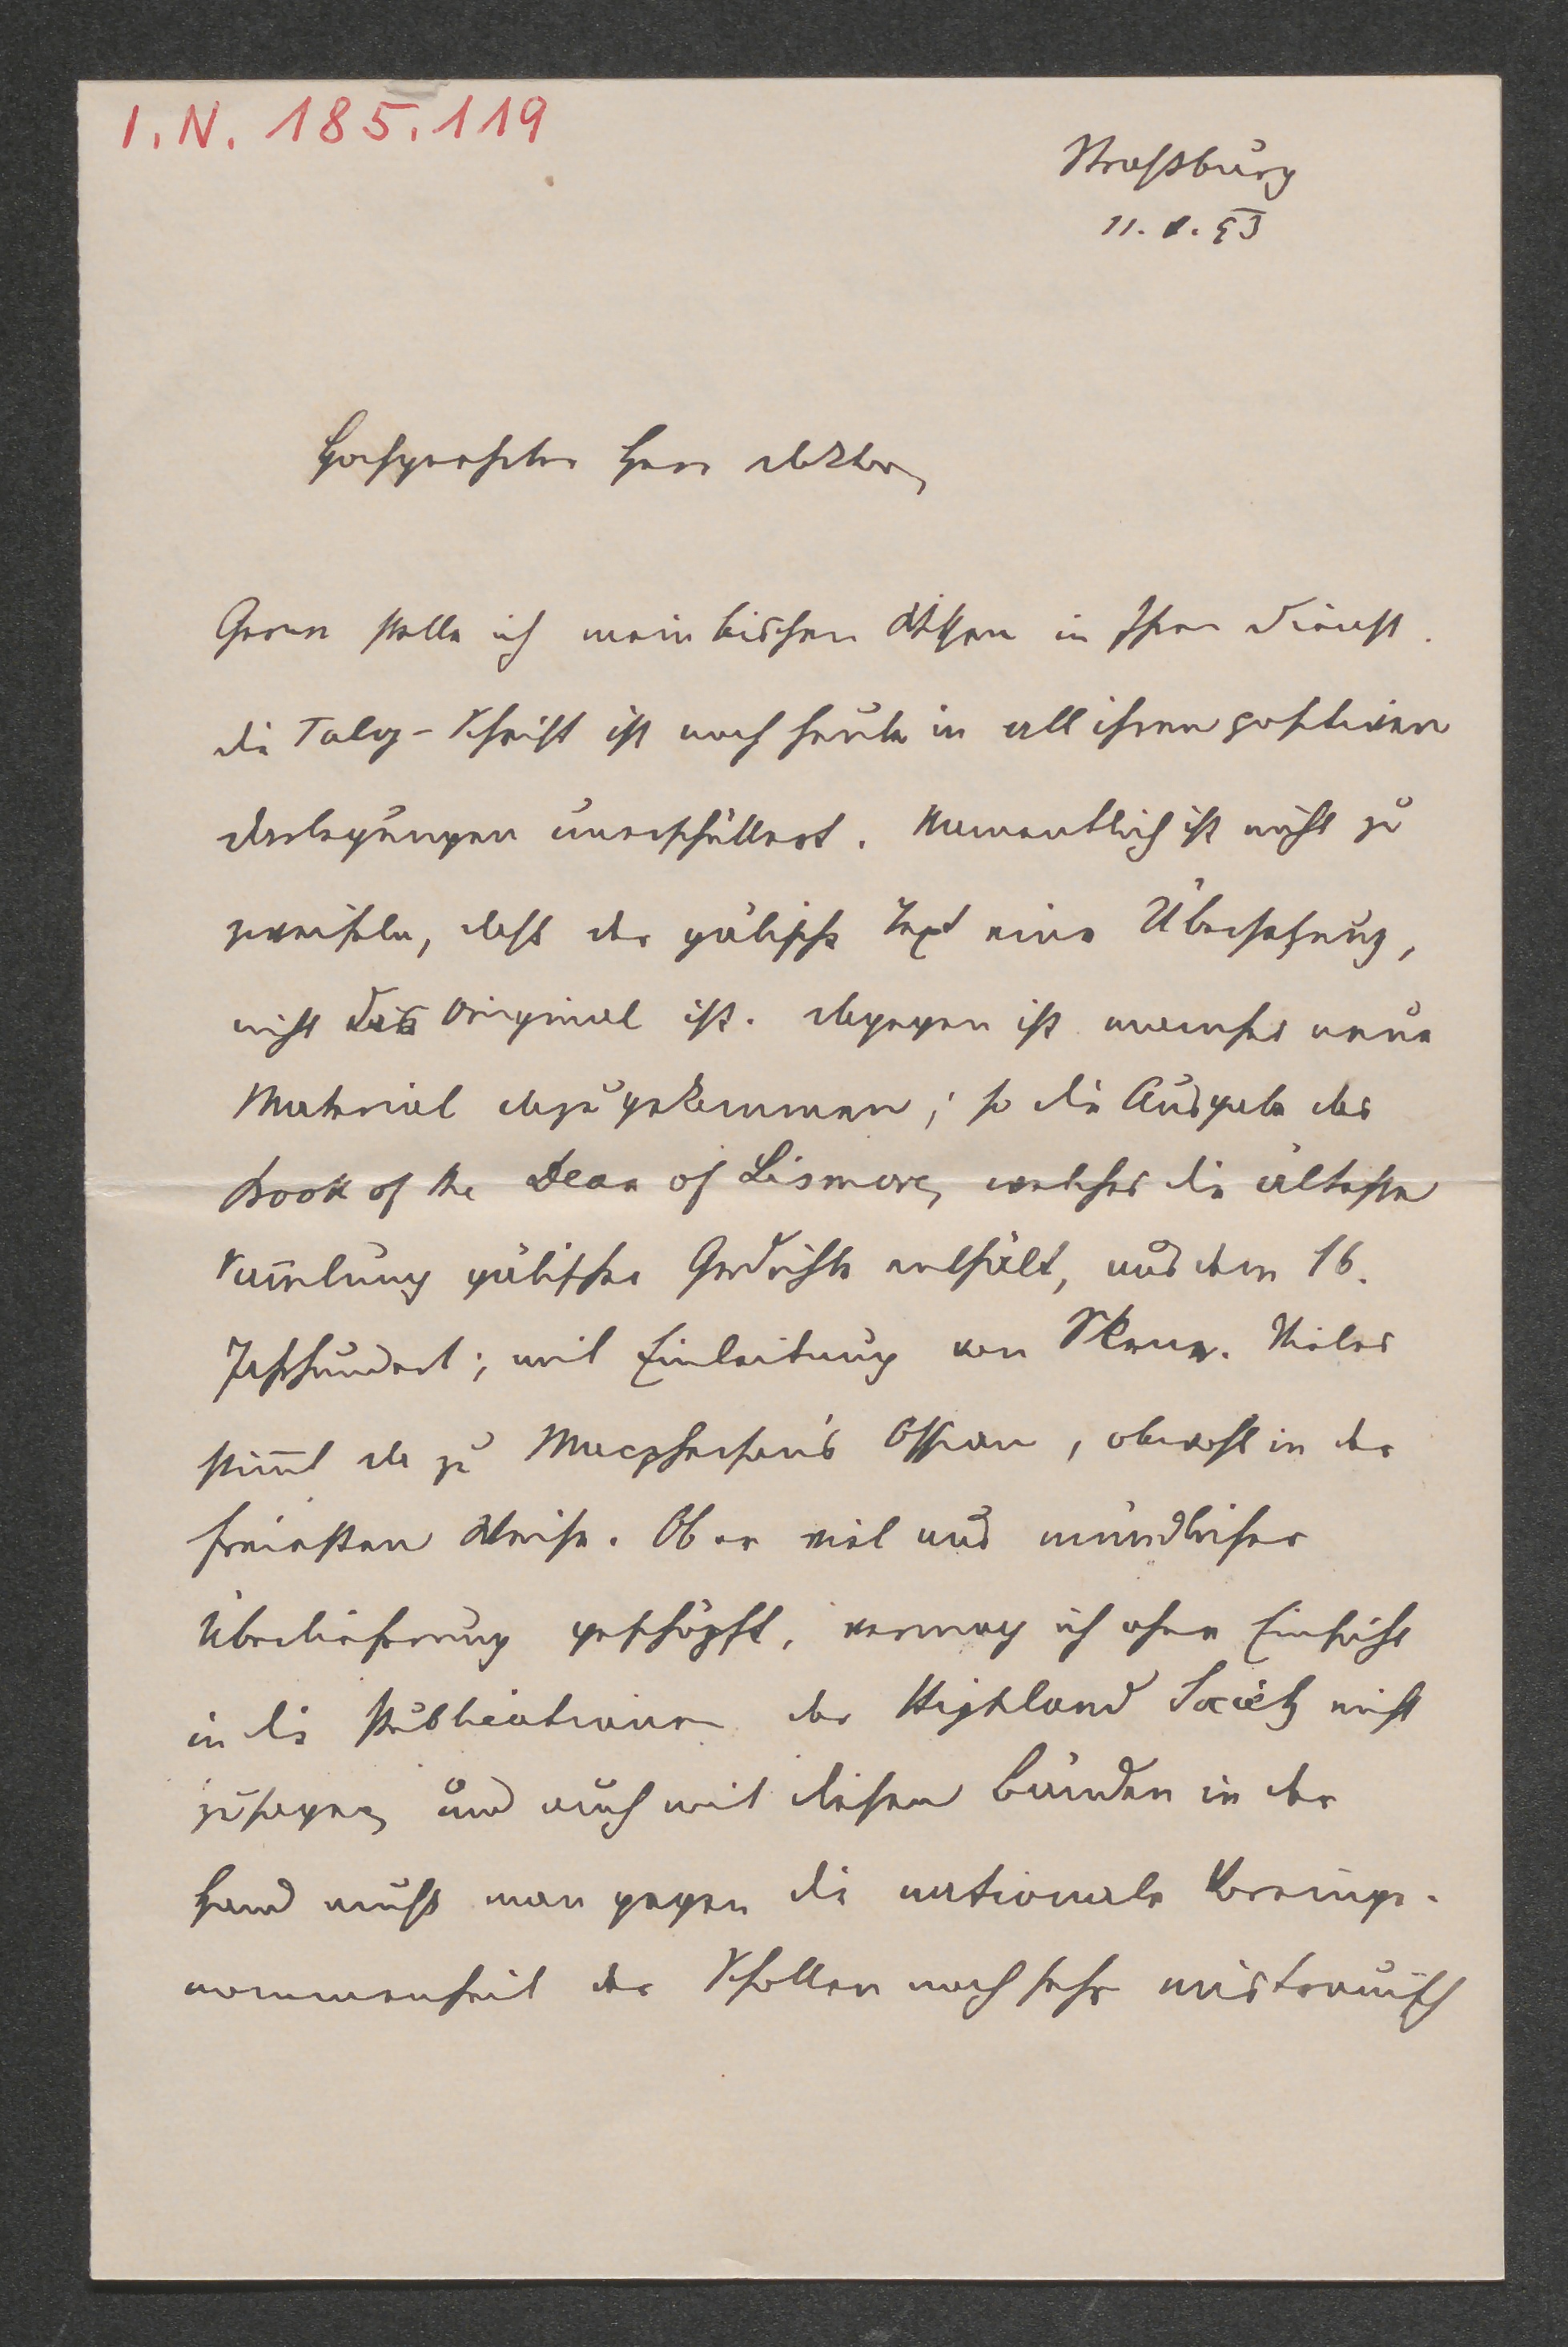 I.N. 185.119
Straßburg
11. X. 93
Hochgeehrter Herr Doktor,
Gerne stelle ich mein bischen Wissen in Ihren Dienst.
die Talvj-Schrift ist noch heute in all ihren positiven
Darlegungen unerschüttert. Namentlich ist nicht zu
zweifeln, daß der gälische Text eine Übersetzung,
nicht das Original ist. dagegen ist manches neue
Material dazugekommen; so die Ausgabe des
Book of the Dean of Lismore, welches die älteste
Sam̅lung gälischer Gedichte enthält, aus dem 16.
Jahrhundert; mit Einleitung von Skene. Vieles
stim̅t da zu Macpherson's Ossian, obwohl in der
freiesten Weise. Ob er viel aus mündlicher
Überlieferung geschöpft, vermag ich ohne Einsicht
in die Publicationen der Highland Society nicht
zu sagen, und auch mit diesen Bänden in der
Hand muß man gegen die nationale Voreinge-
nommenheit der Schotten noch sehr mistrauisch